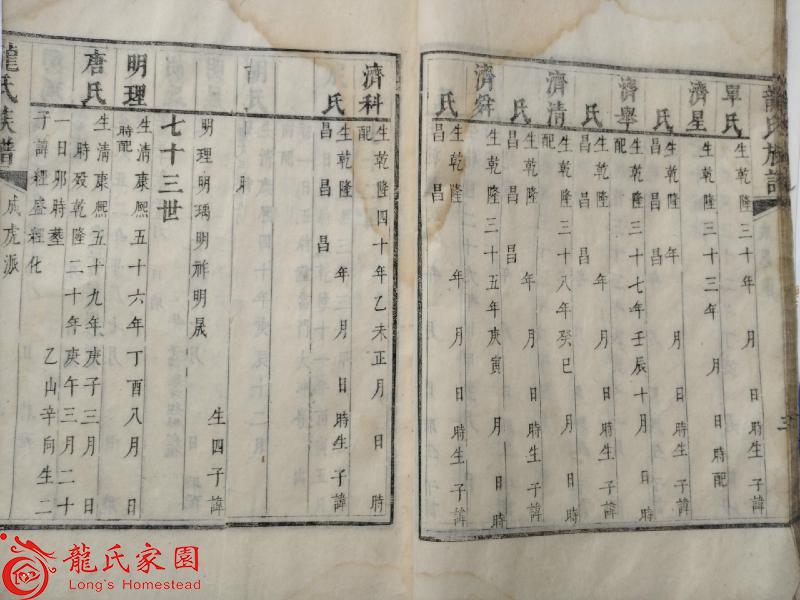 龍氏族譜
單氏 生乾隆三十年 月 日時
昌 昌 年 月 日時生子諱
濟星 生乾隆三十三年 月 日時配
氏 生乾隆 年 月 日時生子諱
昌 昌
濟舉 生乾隆三十七年壬辰十月 日時
配
氏 生乾隆 年 月 日時生子諱
昌 昌
濟清 生乾隆三十八年癸巳 月 日時
配
氏 生乾隆 年 月 日時生子諱
昌 昌
濟舜 生乾隆三十五年庚寅 月 日時
氏 生乾隆 年 月 日時生子諱
昌 昌
濟科 生乾隆四十年乙未正月 日時
配
氏 生乾隆 年 月 日時生子諱
昌 昌
胡氏
生四子諱
明理明瑀明祥明晟
七十三世
明理 生清康熙五十六年丁酉八月 日
時配
唐氏 生清康熙五十九年庚子三月 日
時歿乾隆二十年庚午三月二十
一日卯時塟 乙山辛向生二
子諱經盛經化
龍氏族譜 成虎派
龍氏家園
Long's Homestead